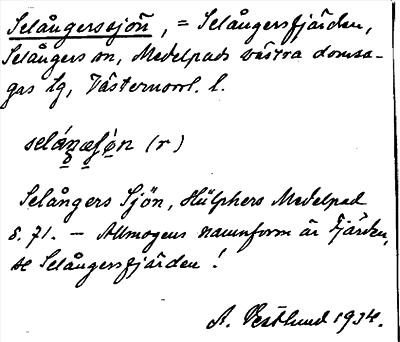 Selångerssjön, = Selångersfjärden,
Selångers sn, Medelpads västra domsa-
gas lg, Västernorrl. l.
selåŋəʃön (r)
Selångers Sjön, Hülphers Medelpad
s. 71. — Allmogens namnform är Fjärden,
se Selångersfjärden!
A. Vestlund 1934.